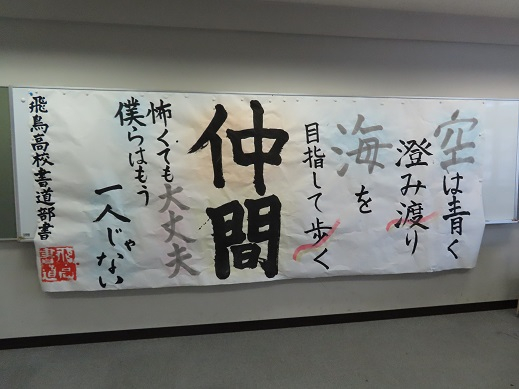 空は青く
澄み渡り
海を
目指して歩く
仲間
怖くても大丈夫
僕らはもう
一人じゃない
飛鳥高校書道部書
飛高
書道